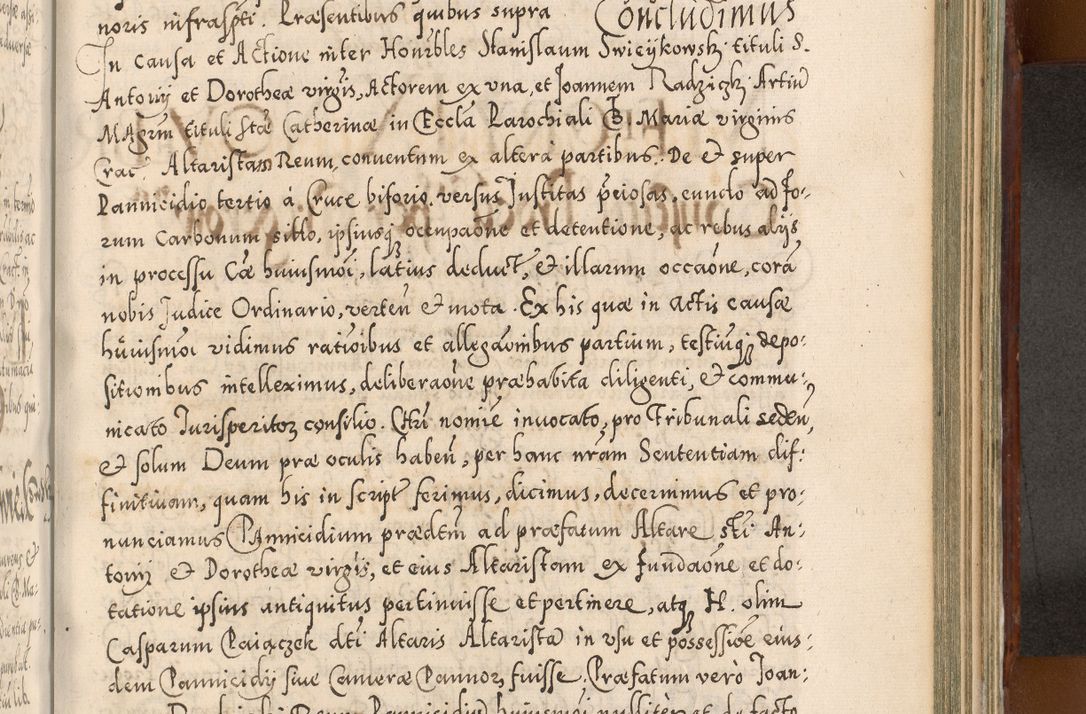 noris infrascpti. Præsentibus quibus supra Concludimus
In causa et Actione inter Honrbles Stanislaum Swicijkowsky tituli S.
Antonij et Dorotheæ virgis, Actorem ex vna, et Joannem Radziczky Artiu
MAgrm tituli Stæ Catherinæ in Eccla Parochiali B. Mariæ virginis
Crac. Altaristam Reum, conuentum ex altera partibus. De et super
Pannicidio tertio à Cruce biforio versus Institas preiosas, eundo ad fo-
rum Carbonum sitto, ipsiusq occupaone et detentione, ac rebus alijs
in processu Cæ huiusmoi, latius deduct, et illarum occaone, cora
nobis Judice Ordinario, verten et mota. Ex his quæ in Actis causæ
huiusmoi vidimus ratioibus et allegaonibus partium, testiuq depo-
sitionibus intelleximus, deliberaone præhabita diligenti, et commu-
nicato Jurisperitoz consilio. Chri nomie inuocato, pro Tribunali seden,
et solum Deum præ oculis haben, per hanc nram Sententiam dif-
finitiuam, quam his in script ferimus, dicimus, decernimus et pro-
nunciamus Pannicidium prædctm ad præfatum Altare sti An-
tonij et Dorotheæ virgis, et eius Altaristam ex fundaone et do-
tatione ipsius antiquitus pertinuisse et pertinere, atq H. olim
Casparum Paiączek dti Altaris Altarista in vsu et possessioe eius-
dem Pannicidij siue Cameræ Pannoz, fuisse. Præfatum verò Joan-
Reum Pannicidiu huiusmoi nulliter et de facto